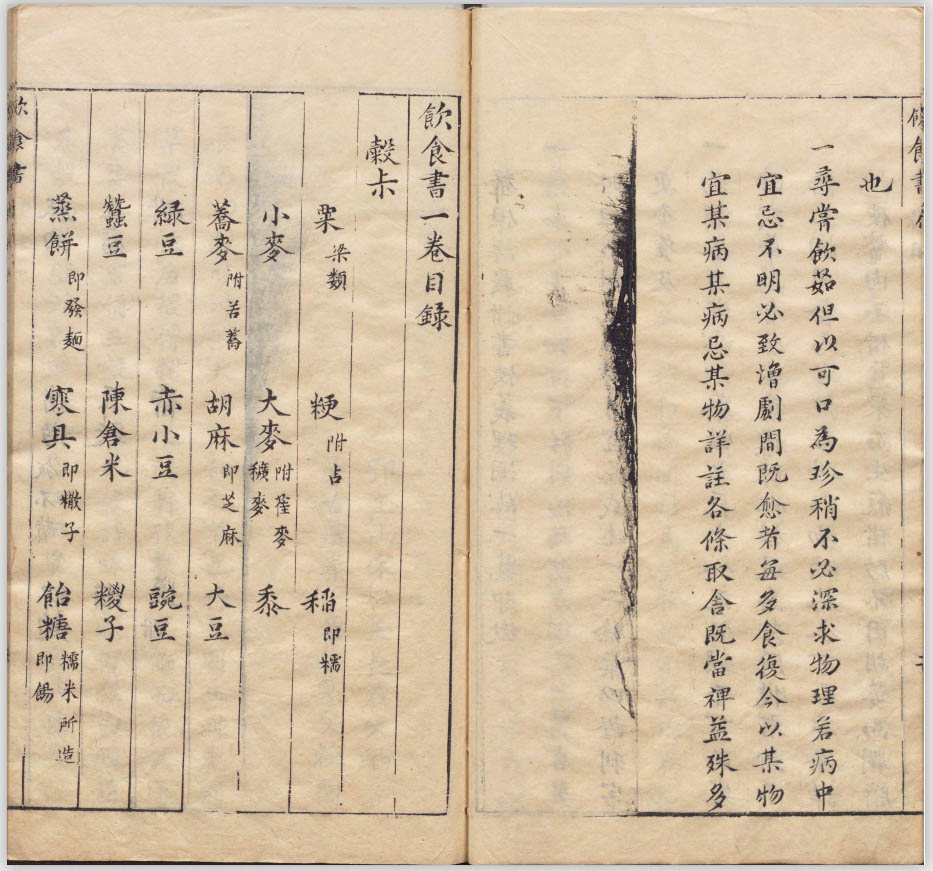 飲食書
也
一尋嘗飲茹但以可口為珍稍不必深求物理若病中
宜忌不明必致增劇間既愈者每多食復今以某物
宜某病某病忌某物詳註各條取舍既當裨益殊多
飲食書一卷目錄
穀尗
粟 梁類 粳 附占 稻 即糯
小麥 大麥 附雀麥 穬麥 黍
蕎麥 附苦蕎 胡麻 即芝麻 大豆
綠豆 赤小豆 豌豆
蠶豆 陳倉米 糉子
蒸餅 即發麵 寒具 即糤子 飴糖 糯米所造 即餳
飲食書